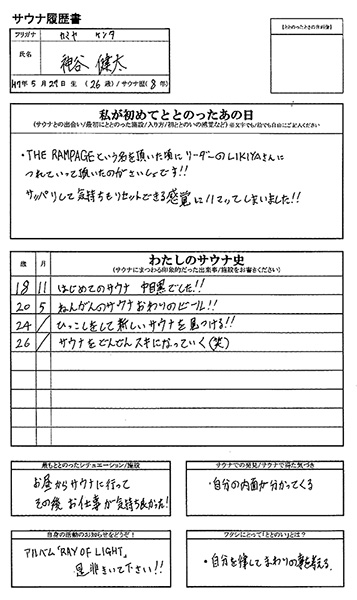 サウナ履歴書
フリガナ カミヤ ケンタ
氏名 神谷 健太
H7年 5月 29日 生 (26歳) / サウナ歴 (8年)
【ととのったときの非科像】
私が初めてととのったあの日
(サウナとの出会い/最初にととのった施設/入り方/初ととのいの感覚など) ※文字でも/絵でも自由にご記入ください
・THE RAMPAGEという名を頂いた頃にリーダーのLIKIYAさんに
つれていって頂いたのがさいしょです!!
サッパリして気持ちもリセットできる感覚にハマってしまいました!!
歳 月 わたしのサウナ史
(サウナにまつわる印象的だった出来事/施設をお書きください)
18 11 はじめてのサウナ 中目黒でした!!
20 5 ねんがんのサウナおわりのビール!!
24 / ひっこしをして新しいサウナを見つける!!
26 / サウナをどんどんスキになっていく(笑)
最もととのったシチュエーション/施設
お昼からサウナに行って
その後 お仕事が気持ち良かった!
サウナでの発見/サウナで得た気づき
・自分の内面が分かってくる
自身の活動のお知らせなどうぞ!
アルバム「RAY OF LIGHT」
是非きいて下さい!!
ワタシにとって「ととのい」とは?
・自分を律してまわりの事を考える